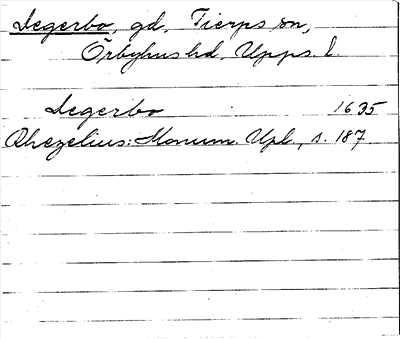 Segerbo, gd, Tierps sn,
Örbyhus hd, Upps. l.
Segerbo 1635
Rhezelius: Monum. Upl., s. 187.